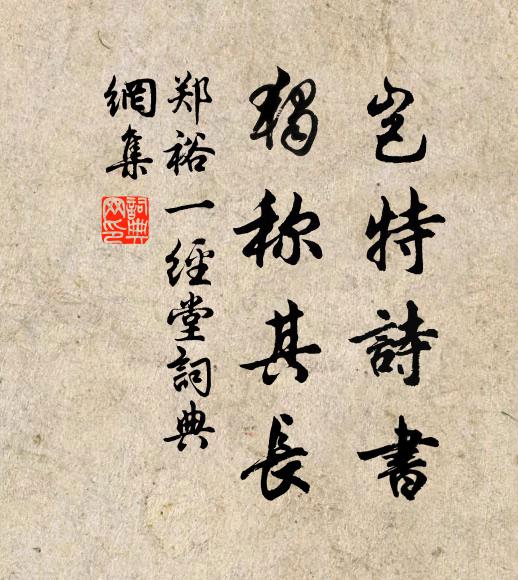 岂特詩書
獨称其長
郑裕一經堂詞典
網集
詞典
网印